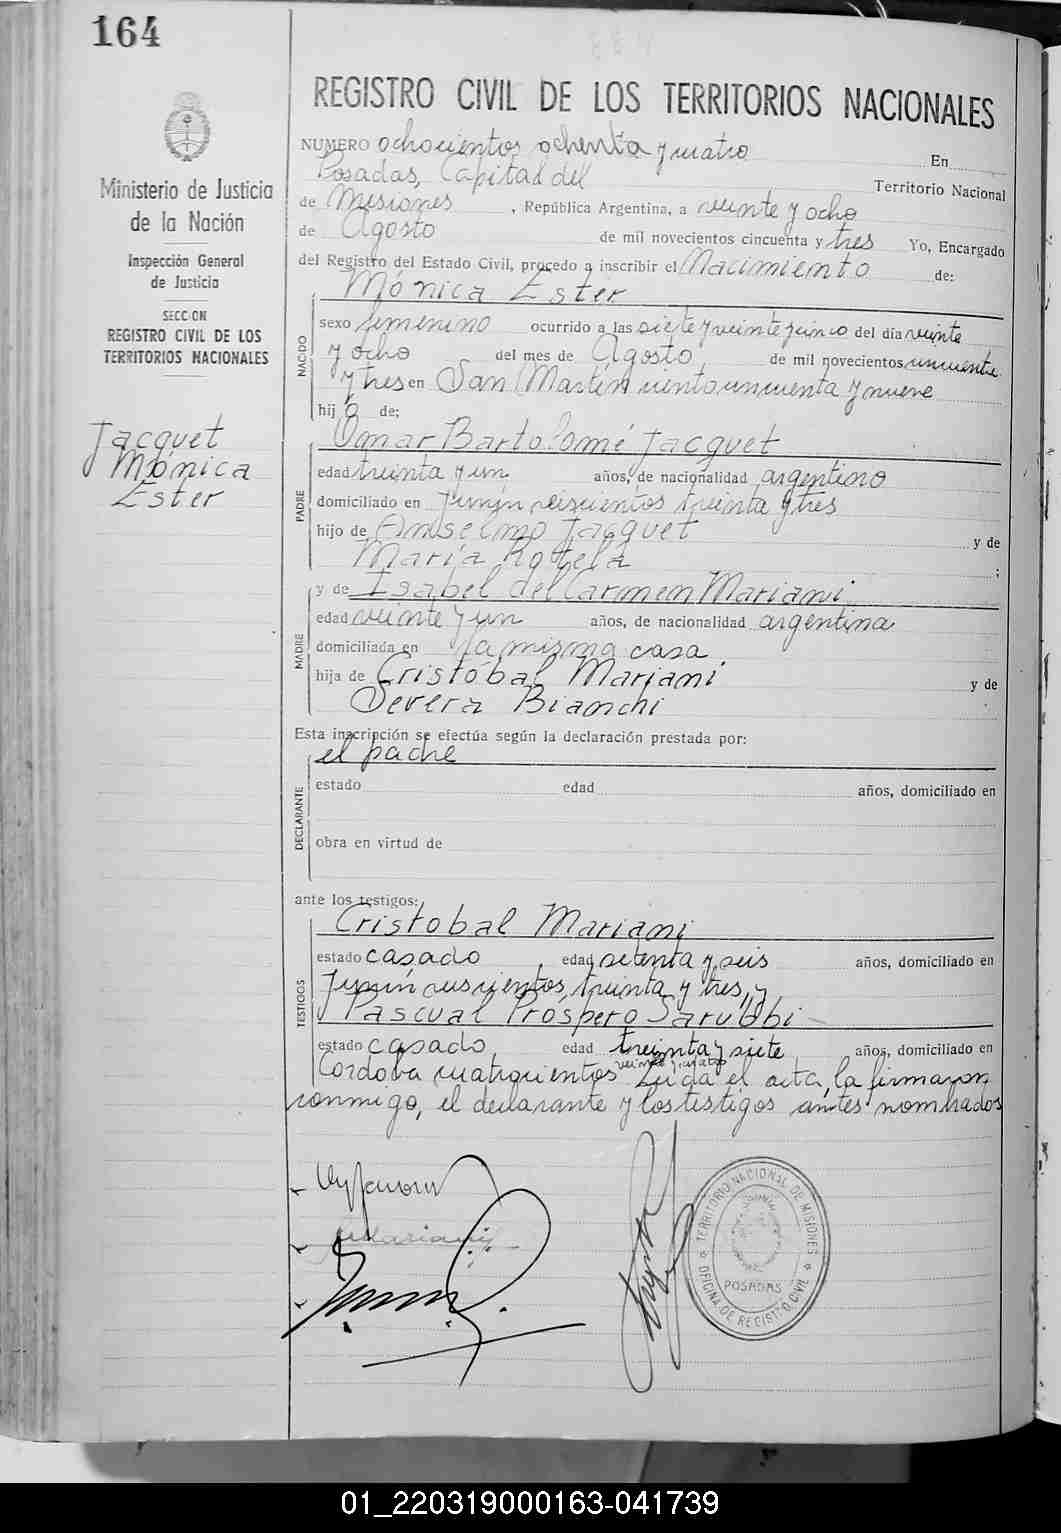 164
Ministerio de Justicia
de la Nación
Inspección General
de Justicia
SECCION
REGISTRO CIVIL DE LOS
TERRITORIOS NACIONALES
Jacquet
Mónica
Ester
REGISTRO CIVIL DE LOS TERRITORIOS NACIONALES
NUMERO ochocientos ochenta y cuatro En
Posadas, Capital del Territorio Nacional
de Misiones, República Argentina, a veinte y ocho
de Agosto de mil novecientos cincuenta y tres Yo, Encargado
del Registro del Estado Civil, procedo a inscribir el Nacimiento de:
Mónica Ester
NACIDO
sexo femenino ocurrido a las siete y veinte y cinco del día veinte
y ocho del mes de Agosto de mil novecientos cincuenta
y tres en San Martín ciento cincuenta y nueve
hija de;
Omar Bartolomé Jacquet
PADRE
edad treinta y un años, de nacionalidad argentino
domiciliado en Junín seiscientos treinta y tres
hijo de Anselmo Jacquet y de
María Rotela ;
y de Isabel del Carmen Mariani
MADRE
edad veinte y un años, de nacionalidad argentina
domiciliada en la misma casa
hija de Cristóbal Mariani y de
Severa Bianchi
Esta inscripción se efectúa según la declaración prestada por:
el padre
DECLARANTE
estado edad años, domiciliado en
obra en virtud de
ante los testigos:
Cristobal Mariani
TESTIGOS
estado casado edad setenta y seis años, domiciliado en
Junín seiscientos treinta y tres, y
Pascual Prospero Sarubbi
estado casado edad treinta y siete años, domiciliado en
veinte y cuatro
Córdoba cuatrocientos Leída el acta, la firmaron
conmigo, el declarante y los testigos antes nombrados
TERRITORIO NACIONAL DE MISIONES
POSADAS
OFICINA DE REGISTRO CIVIL
01_220319000163-041739